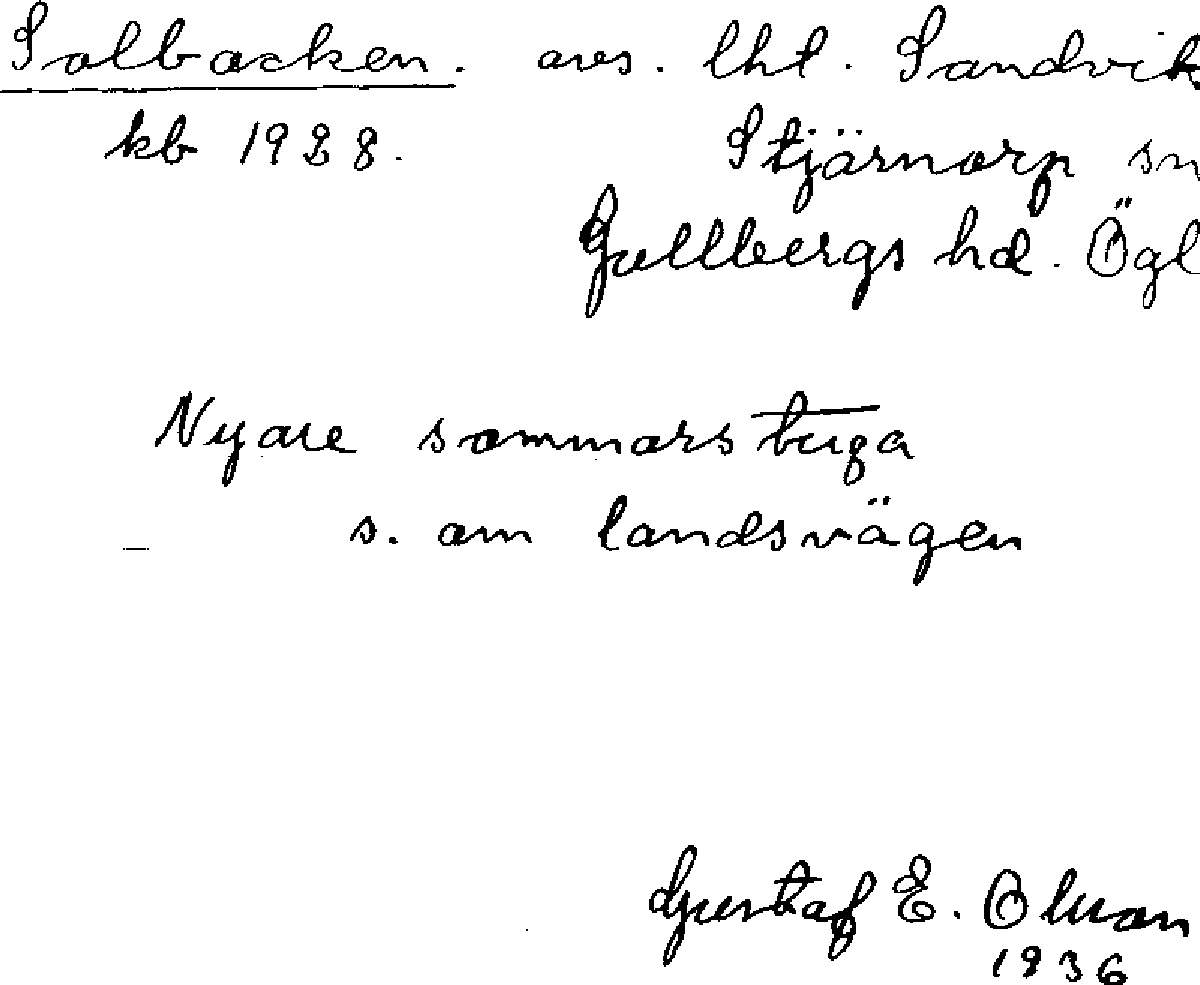 Solbacken. avs. lht. Sandvik
kb 1928. Stjärnorp sn
Gullbergs hd. Ögl
Nyare sommarstuga
s. om landsvägen
Gustaf E. Olson
1936